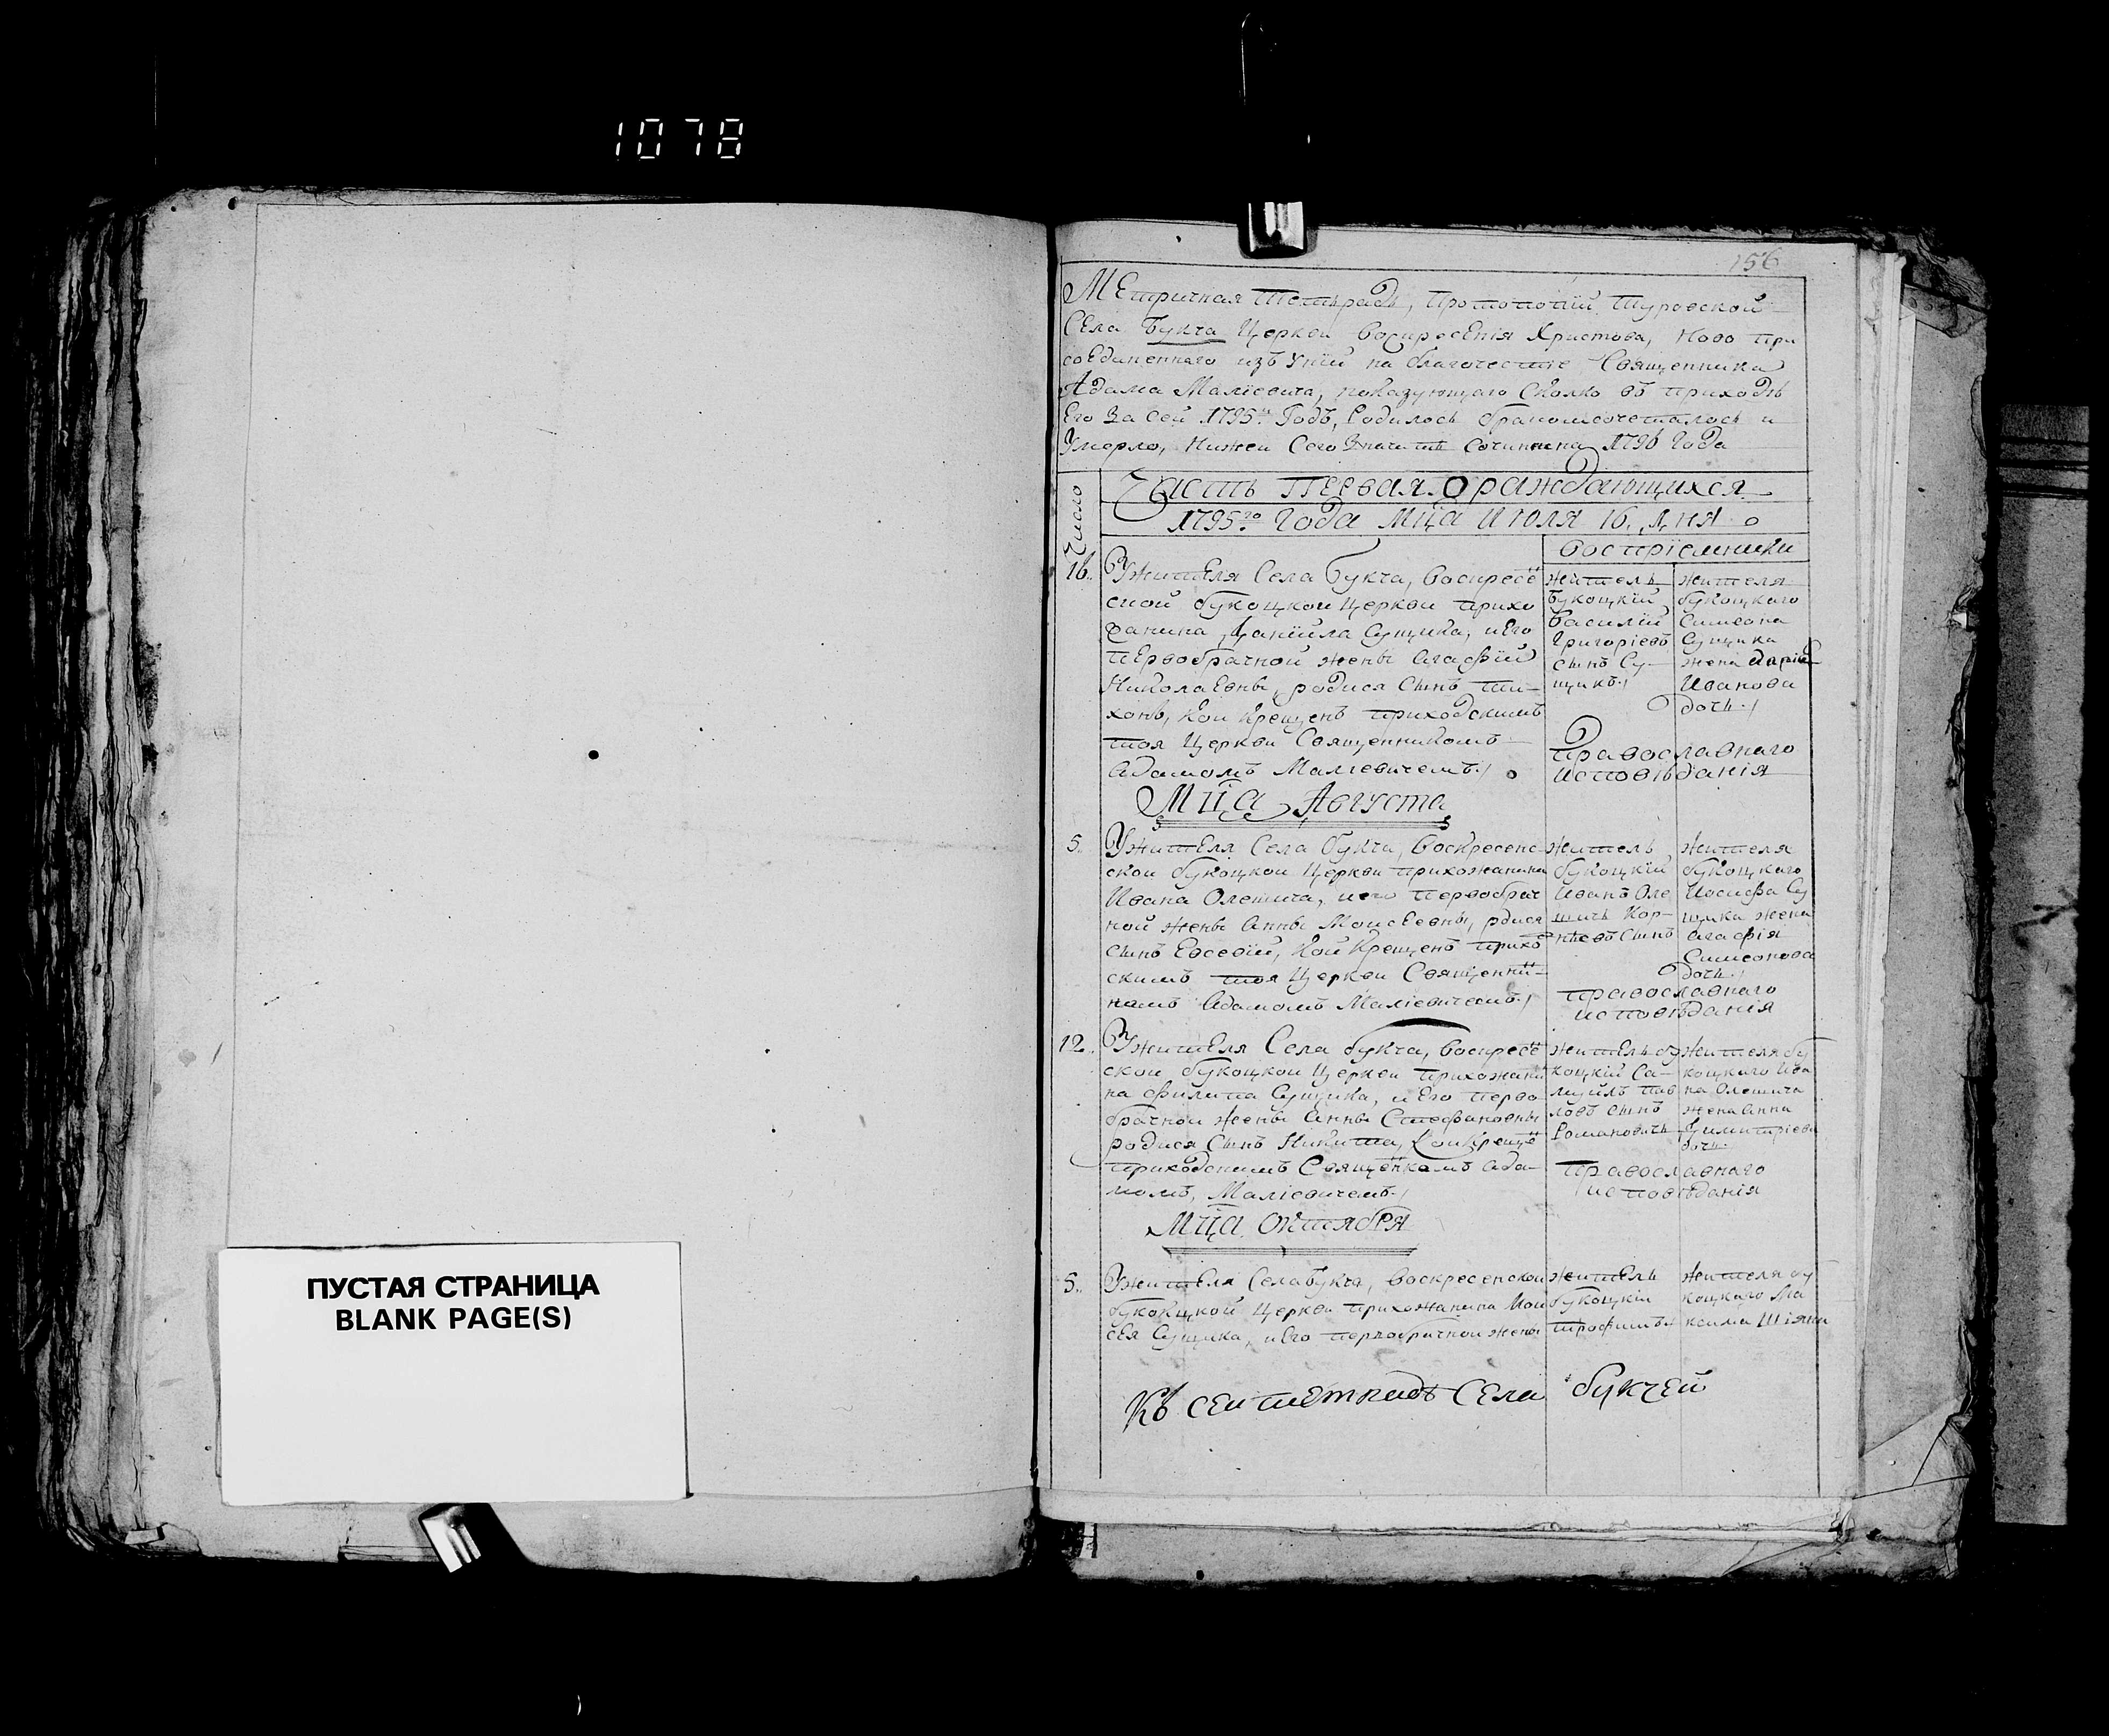 1078
ПУСТАЯ СТРАНИЦА
BLANK PAGE(S)
156
Метричная тетрадь, Протопопїи Туровской
Села Букча Церкви Воскресенія Христова, ново при
соединеннаго изъ Унїи на благочестие Священника
Адама Малїевича, показующаго сколко въ приходѣ
Его За сей 1795й Годъ, Родилось бракомсочеталось и
Умерло, Нижей Сего Значитъ сочинина 1796 Года
Число
Часть Первая. О раждающихся
1795го Года Мца Июля 16. Дня
Воспріемники
16.
Ужителя Села Букча, Воскресе
ской букоцкой Церкви прихо
жанина Данїила Сущика, и Его
первобрачной жены Агафїи
Николаевны, родися Сынъ Ти-
хонъ, кой Крещенъ приходскимъ
тоя Церкви Священникомъ
Адамомъ Малїевичемъ./
житель
букоцкій
Василій
Григоріевъ
сынъ Су-
щикъ./
жителя
букоцкаго
Симеона
Сущика
жена Дарія
Иванова
дочь./
православнаго
исповѣданія
Мца Августа
5.
Ужителя Села Букча, Воскресенс
ской букоцкой Церкви прихожанина
Ивана Олешича, иего первобрач
ной жены Анны Моисеевны, рдися
сынъ Евсевїй, кой Крещенъ прихо
скимъ тоя Церкви Священни-
камъ Адамомъ Малїевичемъ./
житель
букоцкїй
Иванъ Оле
шичь Кор-
нѣевъ сынъ
жителя
букоцкаго
Иосифа Су
щика жена
Агафія
Симеонова
дочь./
православнаго
исповѣданія
12.
Ужителя Села букча, Воскресе
ской букоцкой Церкви прихожани
на Филипа Сущика, и Его перво
брачной жены Анны Стефановны
родися Сынъ Никита, Кои Креще
приходскимъ Священкамъ Ада-
момъ, Малїевичемъ./
житель бу
коцкїй Са-
муйлъ Пав
ловъ сынъ
Романовичь
жителя бу
коцкаго Ива
на Олешича
жена Анна
Димитріева
дочь.
православнаго
исповѣданія
Мца Октября
5.
Ужителя Села Букча, Воскресенской
букоцкой Церкви прихожанина Мои
сея Сущика, и Его первобрачной жены
житель
букоцкій
Трофимъ
жителя бу
коцкаго Ма
ксима
Къ сеи Села букчей